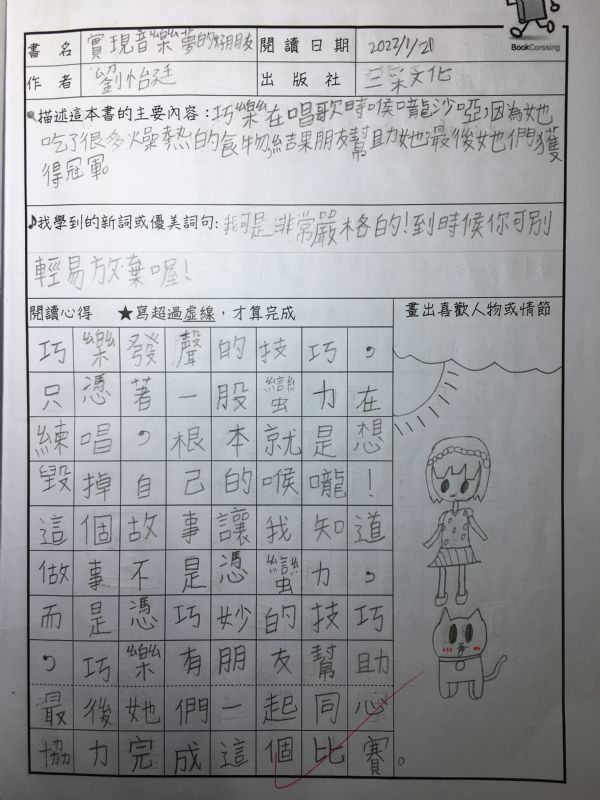 BookCorssing
書名 實現音樂夢的好朋友 閱讀日期 2023/1/21
作者 劉怡廷 出版社 三采文化
描述這本書的主要內容:巧樂在唱歌時喉嚨沙啞,因為她
吃了很多燥熱的食物,結果朋友幫助她,最後她們獲
得冠軍。
我學到的新詞或優美詞句:我可是非常嚴格的!到時候你可別
輕易放棄喔!
閱讀心得 ★寫超過虛線,才算完成
畫出喜歡人物或情節
巧樂發聲的技巧,
只憑著一股蠻力在
練唱,根本就是想
毀掉自己的喉嚨!
這個故事讓我知道
做事不是憑蠻力,
而是憑巧妙的技巧
,巧樂有朋友幫助
最後她們一起同心
協力完成這個比賽。